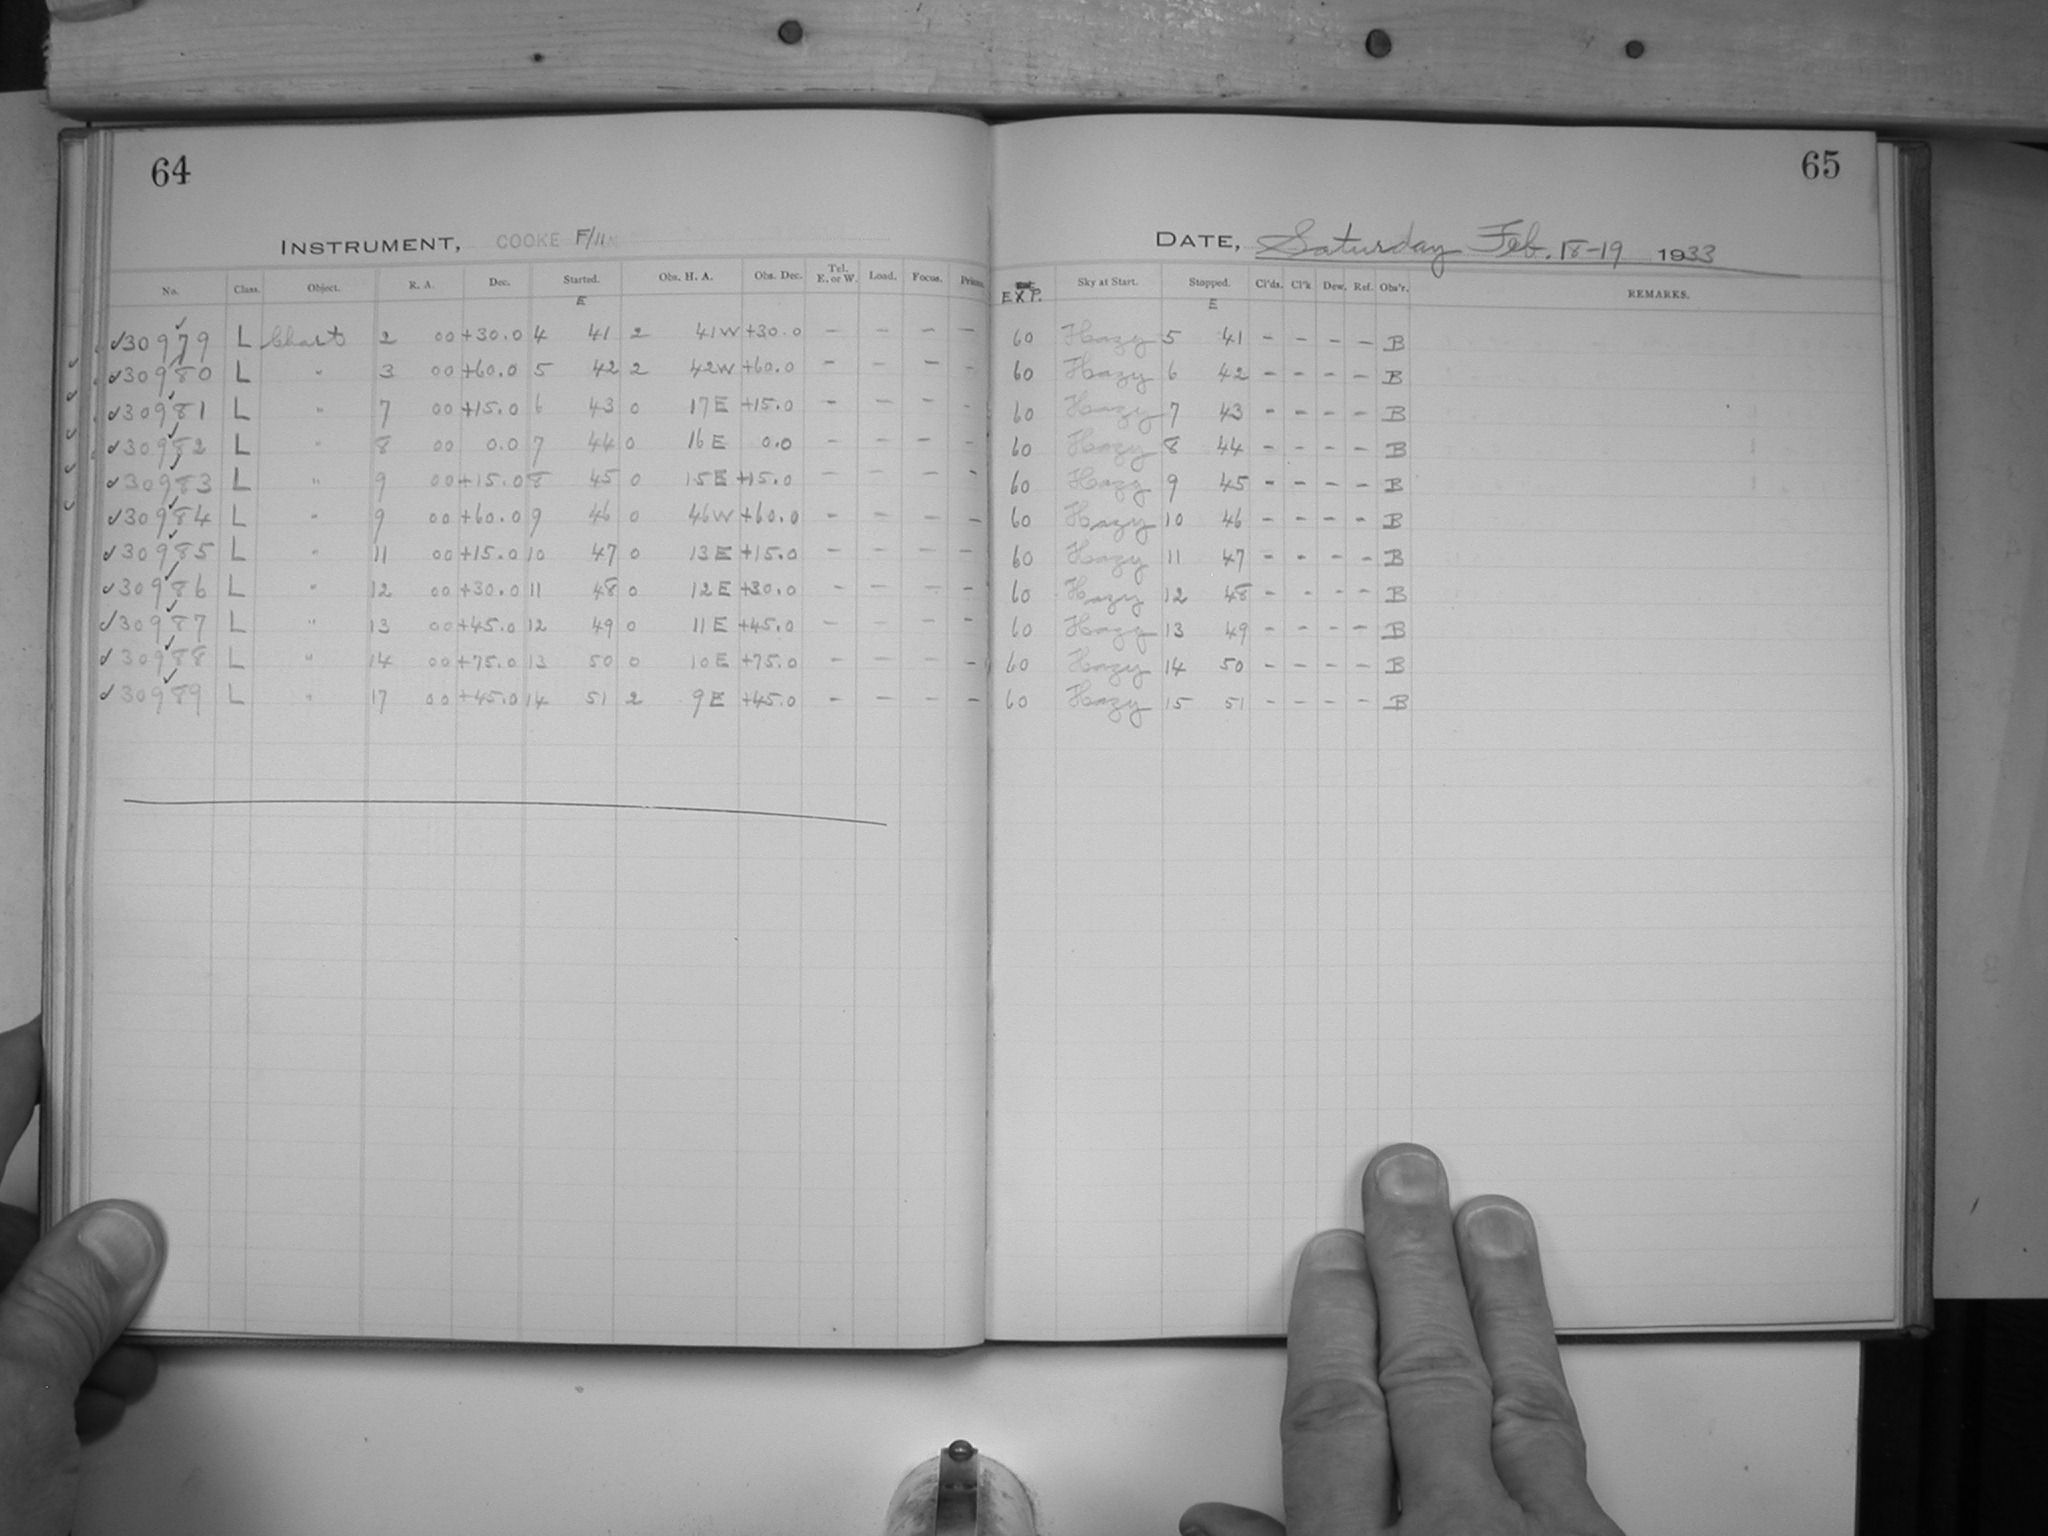 64
INSTRUMENT, COOKE F/11
No. Class. Object. R. A. Dec. Started. Obs. H. A. Obs. Dec. Tel. E. or W. Load. Focus.
E
30979 L Chart 2 00 +30.0 4 41 2 41 W +30.0 – – – –
30980 L " 3 00 +60.0 5 42 2 42 W +60.0 – – – –
30981 L " 7 00 +15.0 6 43 0 17 E +15.0 – – – –
30982 L " 8 00 0.0 7 44 0 16 E 0.0 – – – –
30983 L " 9 00 +15.0 8 45 0 15 E +15.0 – – – –
30984 L " 9 00 +60.0 9 46 0 46 W +60.0 – – – –
30985 L " 11 00 +15.0 10 47 0 13 E +15.0 – – – –
30986 L " 12 00 +30.0 11 48 0 12 E +30.0 – – – –
30987 L " 13 00 +45.0 12 49 0 11 E +45.0 – – – –
30988 L " 14 00 +75.0 13 50 0 10 E +75.0 – – – –
30989 L " 17 00 +45.0 14 51 2 9 E +45.0 – – – –
65
DATE, Saturday Feb. 18-19 1933
EXP. Sky at Start. Stopped. Cl'ds. Cl'k Dew. Ref. Obs'r. REMARKS.
E
60 Hazy 5 41 – – – – B
60 Hazy 6 42 – – – – B
60 Hazy 7 43 – – – – B
60 Hazy 8 44 – – – – B
60 Hazy 9 45 – – – – B
60 Hazy 10 46 – – – – B
60 Hazy 11 47 – – – – B
60 Hazy 12 48 – – – – B
60 Hazy 13 49 – – – – B
60 Hazy 14 50 – – – – B
60 Hazy 15 51 – – – – B